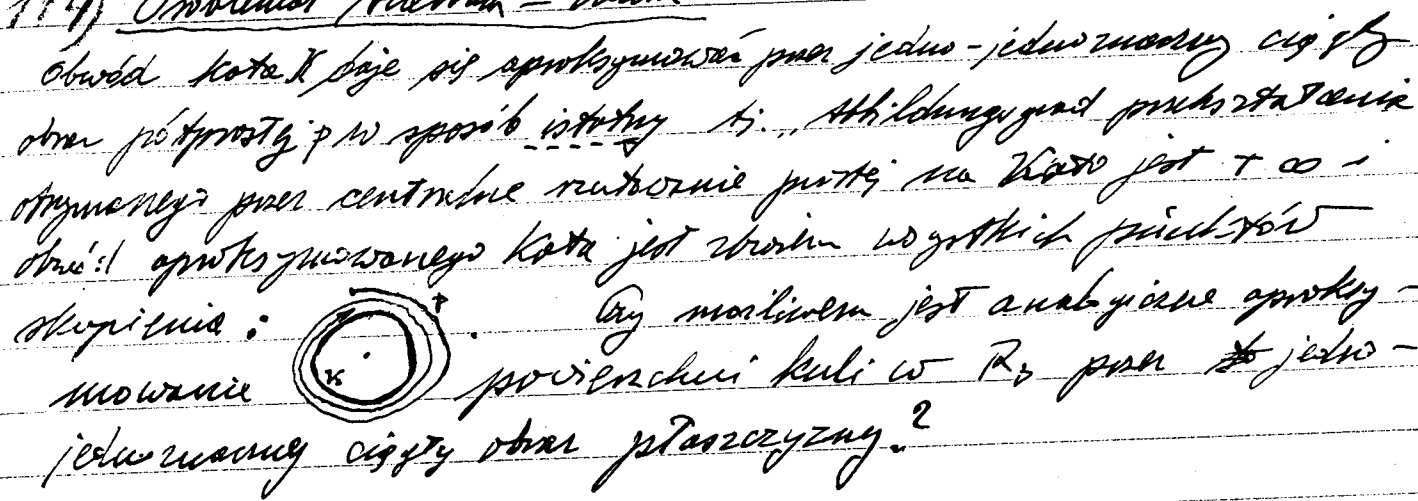 114)
Obwód koła K daje się aproksymować przez jedno-jednoznaczny ciągły
obraz półprostej p w sposób istotny tj. „Abbildungsgrad przekształcenia
otrzymanego przez centralne rzutowanie prostej na Koło jest + ∞ i
obwód aproksymowanego Koła jest zbiorem wszystkich punktów
skupienia : p K . Czy możliwem jest analogiczne aproksy-
mowanie powierzchni kuli w R₃ przez jedno-
jednoznaczny ciągły obraz płaszczyzny?